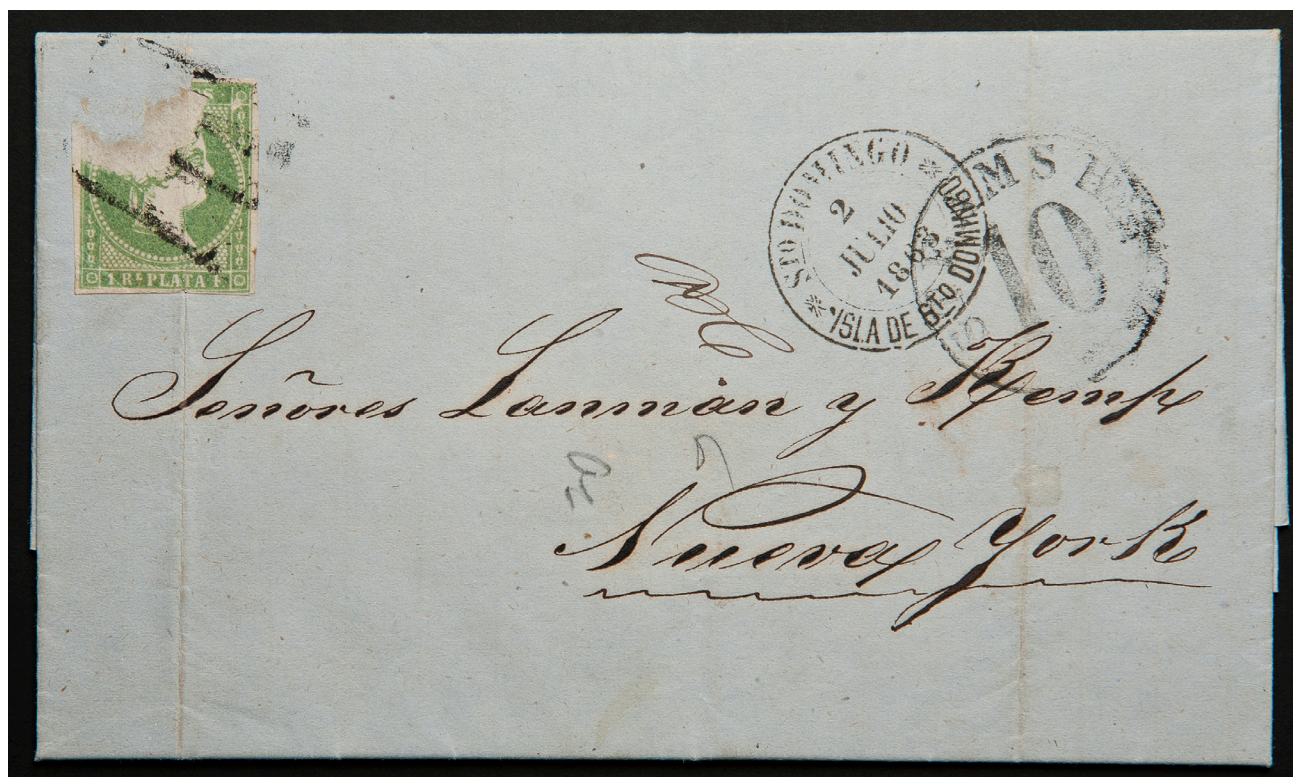 1 Rˢ. PLATA F.
Sᵀᴼ DOMINGO
2
JULIO
1863
ISLA DE Sᵀᴼ DOMINGO
10
Señores Lanman y Kemp
Nueva York